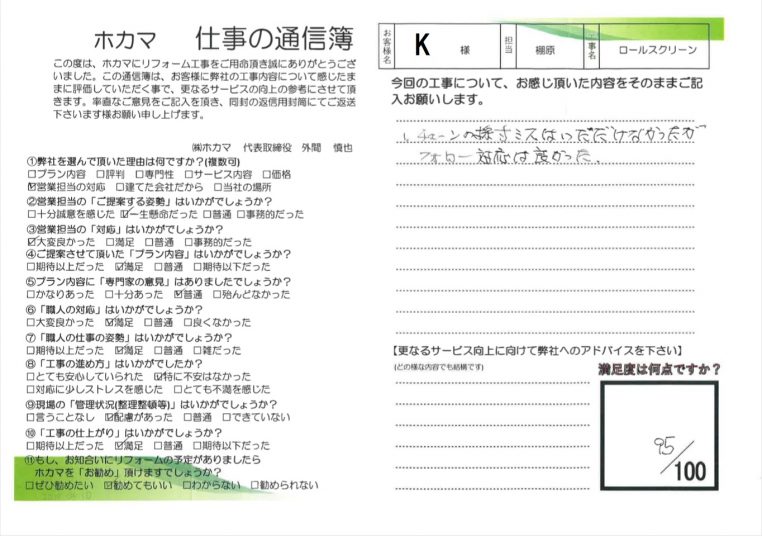 ホカマ 仕事の通信簿
この度は、ホカマにリフォーム工事をご用命頂き誠にありがとうござ
いました。この通信簿は、お客様に弊社の工事内容について感じたま
まに評価していただく事で、更なるサービスの向上の参考にさせて頂
きます。率直なご意見をご記入を頂き、同封の返信用封筒にてご返送
下さいます様お願い申し上げます。
㈱ホカマ 代表取締役 外間 慎也
①弊社を選んで頂いた理由は何ですか?(複数可)
□プラン内容 □評判 □専門性 □サービス内容 □価格
☑営業担当の対応 □建てた会社だから □当社の場所
②営業担当の「ご提案する姿勢」はいかがでしょうか?
□十分誠意を感じた ☑一生懸命だった □普通 □事務的だった
③営業担当の「対応」はいかがでしょうか?
☑大変良かった □満足 □普通 □事務的だった
④ご提案させて頂いた「プラン内容」はいかがでしょうか?
□期待以上だった ☑満足 □普通 □期待以下だった
⑤プラン内容に「専門家の意見」はありましたでしょうか?
□かなりあった □十分あった ☑普通 □殆んどなかった
⑥「職人の対応」はいかがでしょうか?
□大変良かった ☑満足 □普通 □良くなかった
⑦「職人の仕事の姿勢」はいかがでしょうか?
□期待以上だった ☑満足 □普通 □雑だった
⑧「工事の進め方」はいかがでしたか?
□とても安心していられた ☑特に不安はなかった
□対応に少しストレスを感じた □とても不満を感じた
⑨現場の「管理状況(整理整頓等)」はいかがでしょうか?
□言うことなし ☑配慮があった □普通 □できていない
⑩「工事の仕上がり」はいかがでしょうか?
□期待以上だった ☑満足 □普通 □期待以下だった
⑪もし、お知合いにリフォームの予定がありましたら
ホカマを「お勧め」頂けますでしょうか?
□ぜひ勧めたい ☑勧めてもいい □わからない □勧められない
お客様名 K 様 担当 棚原 事名 ロールスクリーン
今回の工事について、お感じ頂いた内容をそのままご記
入お願いします。
チェーンの採寸ミスはいただけなかったが
フォロー対応は良かった。
【更なるサービス向上に向けて弊社へのアドバイスを下さい】
(どの様な内容でも結構です)
満足度は何点ですか?
95/100